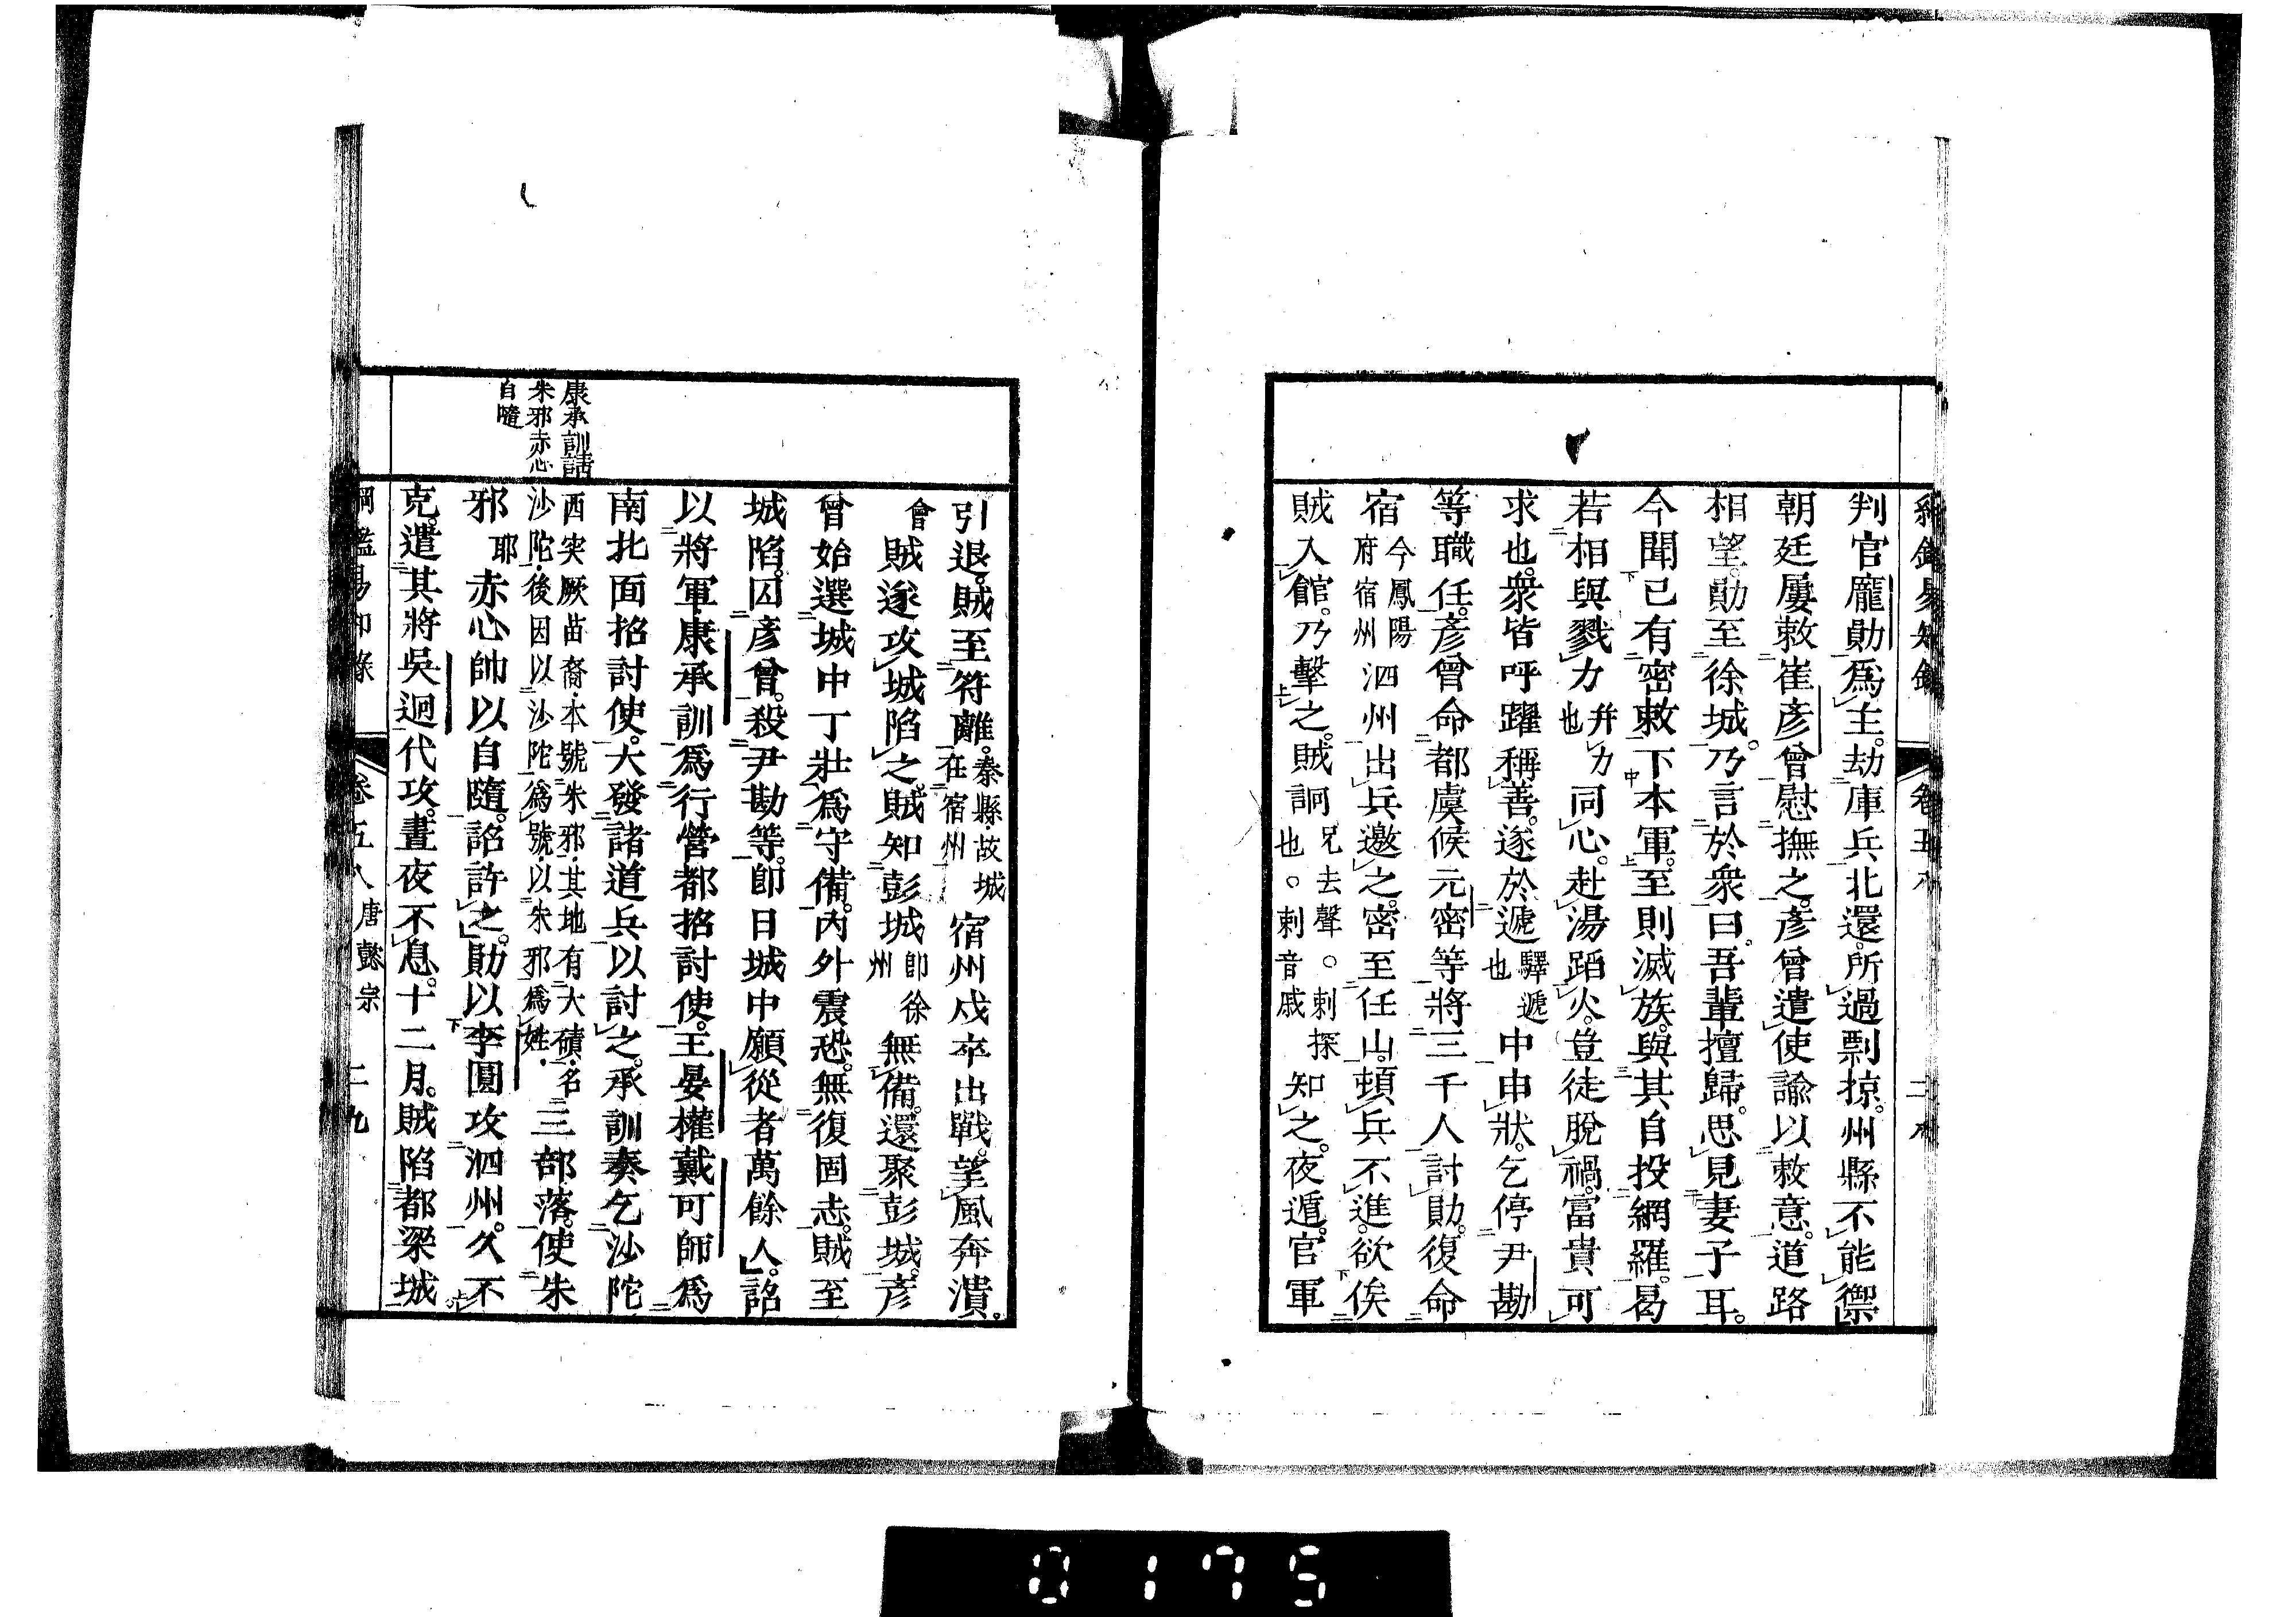 綱鑑易知錄 卷五八
判官龐勛爲主。劫庫兵北還。所過剽掠。州縣不能禦
朝廷屢敕崔彥曾慰撫之。彥曾遣使諭以敕意。道路
相望。勛至徐城。乃言於衆曰。吾輩擅歸。思見妻子耳。
今聞已有密敕下本軍。至則滅族。與其自投網羅。曷
若相與戮力幷力也同心。赴湯蹈火。豈徒脫禍。富貴可
求也。衆皆呼躍稱善。遂於遞驛遞也中申狀。乞停尹勘
等職任。彥曾命都虞候元密等將三千人討勛。復命
宿今鳳陽府宿州泗州出兵邀之。密至任山。頓兵不進。欲俟
賊入館。乃擊之。賊詗兄去聲。刺探也。刺音戚知之。夜遁。官軍
引退。賊至符離。秦縣。故城在宿州宿州戍卒出戰。望風奔潰。
會賊遂攻城陷之。賊知彭城卽徐州無備。還聚彭城。彥
曾始選城中丁壯爲守備。內外震恐。無復固志。賊至
城陷。囚彥曾。殺尹勘等。卽日城中願從者萬餘人。詔
以將軍康承訓爲行營都招討使。王晏權戴可師爲
南北面招討使。大發諸道兵以討之。承訓奏乞沙陀
康承訓請朱邪赤心自隨
西突厥苗裔。本號朱邪。其地有大磧。名沙陀。後因以沙陀爲號。以朱邪爲姓。三部落。使朱
邪耶赤心帥以自隨。詔許之。勛以李圓攻泗州。久不
克。遣其將吳迥代攻。晝夜不息。十二月。賊陷都梁城
綱鑑易知錄 卷五八 唐懿宗 二九
0175